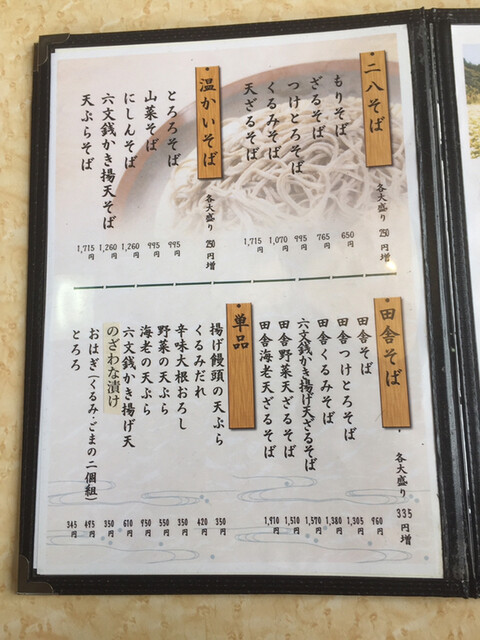 二八そば
各大盛り 250円増
もりそば 650円
ざるそば 765円
つけとろそば 995円
くるみそば 1,070円
天ざるそば 1,715円
温かいそば
各大盛り 250円増
とろろそば 995円
山菜そば 995円
にしんそば 1,260円
六文銭かき揚天そば 1,260円
天ぷらそば 1,715円
田舎そば
各大盛り 335円増
田舎そば 960円
田舎つけとろそば 1,305円
田舎くるみそば 1,380円
六文銭かき揚げ天ざるそば 1,570円
田舎野菜天ざるそば 1,510円
田舎海老天ざるそば 1,910円
単品
揚げ饅頭の天ぷら 350円
くるみだれ 420円
辛味大根おろし 350円
野菜の天ぷら 550円
海老の天ぷら 950円
六文銭かき揚げ天 610円
のざわな漬け 350円
おはぎ(くるみ・ごまの二個組) 495円
とろろ 345円